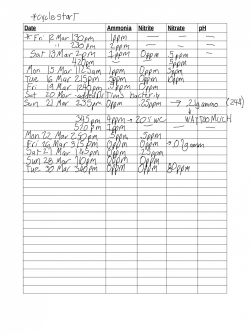 *cycle start
Date Ammonia Nitrite Nitrate pH
* Fri 12 Mar 130pm 1ppm — — —
" 230pm 2ppm — — —
Sat 13 Mar 2pm 1ppm 0ppm 5ppm
420pm — — 5ppm
Mon 15 Mar 1125am 1ppm 0ppm 5ppm
Tue 16 Mar 215pm 1ppm 0ppm 10ppm
Fri 19 Mar 1240pm 0ppm
Sat 20 Mar - added Dr Tims bacteria
Sun 21 Mar 235pm 0ppm 25ppm →
345pm 4ppm → 20% WC WAY TOO MUCH
520pm 1ppm
Mon 22 Mar 250pm 5ppm
Fri 26 Mar 315pm 0ppm 0ppm
Sat 27 Mar 145pm 0ppm
Sun 28 Mar 110pm 0ppm 0ppm
Tue 30 Mar 360pm 0ppm 0ppm 80ppm